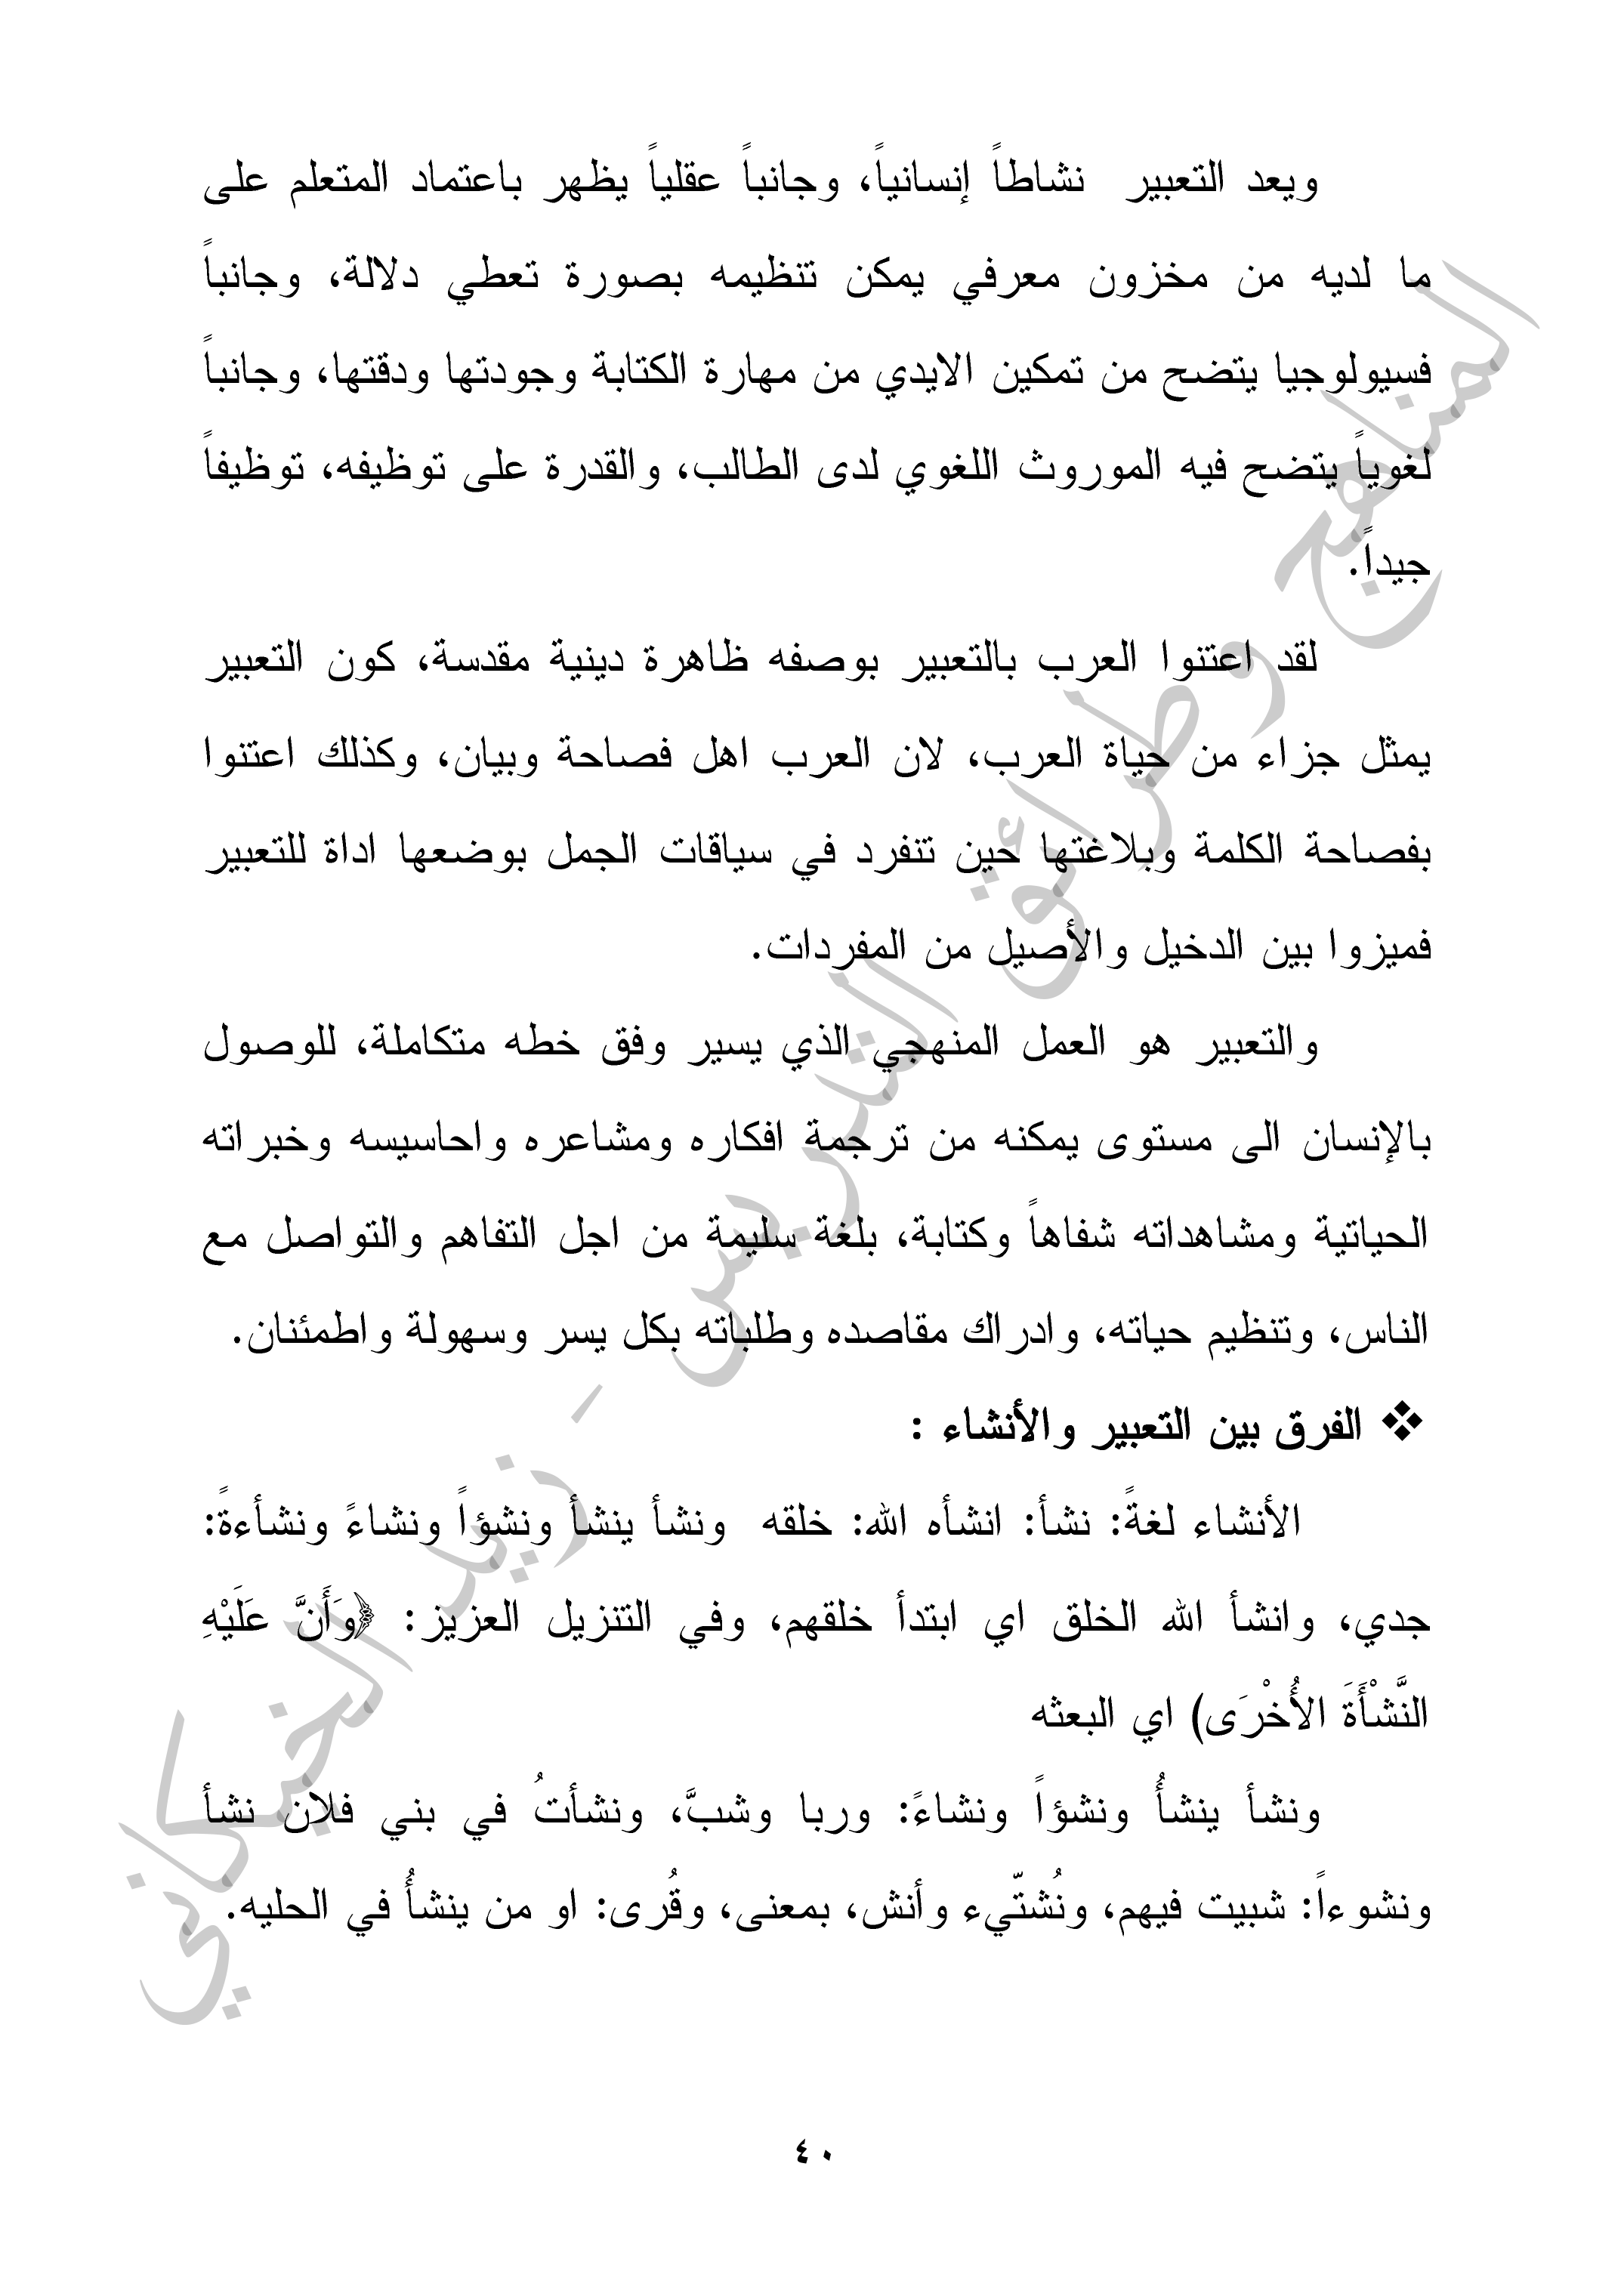 ويعد التعبير نشاطاً إنسانياً، وجانباً عقلياً يظهر باعتماد المتعلم على
ما لديه من مخزون معرفي يمكن تنظيمه بصورة تعطي دلالة، وجانباً
فسيولوجيا يتضح من تمكين الايدي من مهارة الكتابة وجودتها ودقتها، وجانباً
لغوياً يتضح فيه الموروث اللغوي لدى الطالب، والقدرة على توظيفه، توظيفاً
جيداً.
لقد اعتنوا العرب بالتعبير بوصفه ظاهرة دينية مقدسة، كون التعبير
يمثل جزاء من حياة العرب، لان العرب اهل فصاحة وبيان، وكذلك اعتنوا
بفصاحة الكلمة وبلاغتها حين تنفرد في سياقات الجمل بوضعها اداة للتعبير
فميزوا بين الدخيل والأصيل من المفردات.
والتعبير هو العمل المنهجي الذي يسير وفق خطه متكاملة، للوصول
بالإنسان الى مستوى يمكنه من ترجمة افكاره ومشاعره واحاسيسه وخبراته
الحياتية ومشاهداته شفاهاً وكتابة، بلغة سليمة من اجل التفاهم والتواصل مع
الناس، وتنظيم حياته، وادراك مقاصده وطلباته بكل يسر وسهولة واطمئنان.
❖ الفرق بين التعبير والأنشاء :
الأنشاء لغةً: نشأ: انشأه الله: خلقه ونشأ ينشأ ونشؤاً ونشاءً ونشأءةً:
جدي، وانشأ الله الخلق اي ابتدأ خلقهم، وفي التنزيل العزيز: ﴿وَأَنَّ عَلَيْهِ
النَّشْأَةَ الأُخْرَى) اي البعثه
ونشأ ينشأُ ونشؤاً ونشاءً: وربا وشبَّ، ونشأتُ في بني فلان نشأ
ونشوءاً: شبيت فيهم، ونُشتّيء وأنش، بمعنى، وقُرى: او من ينشأُ في الحليه.
٤٠
المناهج وطرائق التدريس - زيد الخيكاني